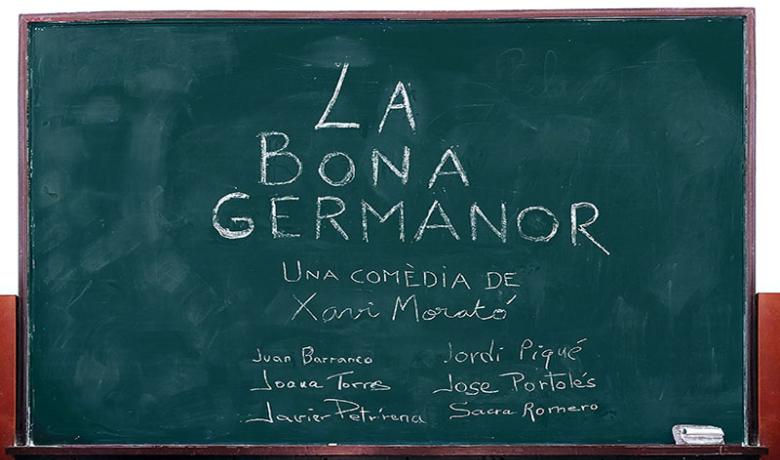 LA
BONA
GERMANOR
UNA COMÈDIA DE
Xavi Morató
Juan Barranco
Jordi Piqué
Joana Torres
Jose Portolés
Javier Petrirena
Sacra Romero